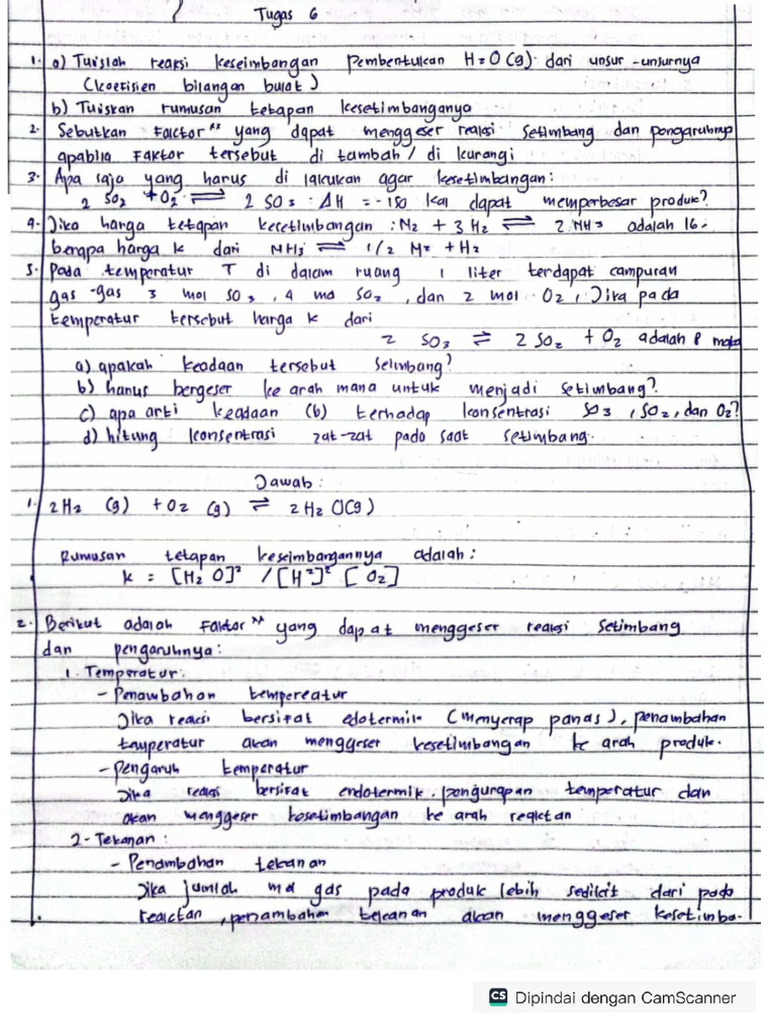 Tugas 6
1. a) Tuislah reaksi keseimbangan pembentukan H2O (g) dari unsur-unsurnya
(koefisien bilangan bulat)
b) Tuiskan rumusan tetapan kesetimbanganya
2. Sebutkan Faktor" yang dapat menggeser reaksi setimbang dan pengaruhnya
apabila Faktor tersebut di tambah / di kurangi
3. Apa saja yang harus di lakukan agar kesetimbangan:
2 SO2 + O2 ⇌ 2 SO3 : ΔH = -180 kal dapat memperbesar produk?
4. Jika harga tetapan kecetimbangan : N2 + 3 H2 ⇌ 2 NH3 adalah 16.
berapa harga k dari NH3 ⇌ 1/2 N2 + H2
5. Pada temperatur T di dalam ruang 1 liter terdapat campuran
gas-gas 3 mol SO3, 4 mol SO2, dan 2 mol O2, Jika pada
temperatur tersebut harga k dari
2 SO3 ⇌ 2 SO2 + O2 adalah 8 maka
a) apakah keadaan tersebut setimbang?
b) harus bergeser ke arah mana untuk menjadi setimbang?
c) apa arti keadaan (b) terhadap konsentrasi SO3, SO2, dan O2?
d) hitung konsentrasi zat-zat pado saat setimbang.
Jawab :
1. 2H2 (g) + O2 (g) ⇌ 2 H2 O(g)
Rumusan tetapan keseimbangannya adalah :
k = [H2 O]² / [H²]² [O2]
2. Berikut adalah Faktor" yang dapat menggeser reaksi setimbang
dan pengaruhnya :
1. Temperatur:
- Penambahan tempereatur
Jika reaksi bersifat edotermik (menyerap panas), penambahan
temperatur akan menggeser kesetimbangan ke arah produk.
- Pengaruh temperatur
Jika reaksi bersifat endotermik. pengurapan temperatur dan
akan menggeser kosetimbangan ke arah reaktan
2. Tekanan :
- Penambahan tekanan
Jika jumlah mol gas pada produk lebih sedikit dari pada
reaktan, penambahan tekanan akan menggeser kesetimba-
CS Dipindai dengan CamScanner